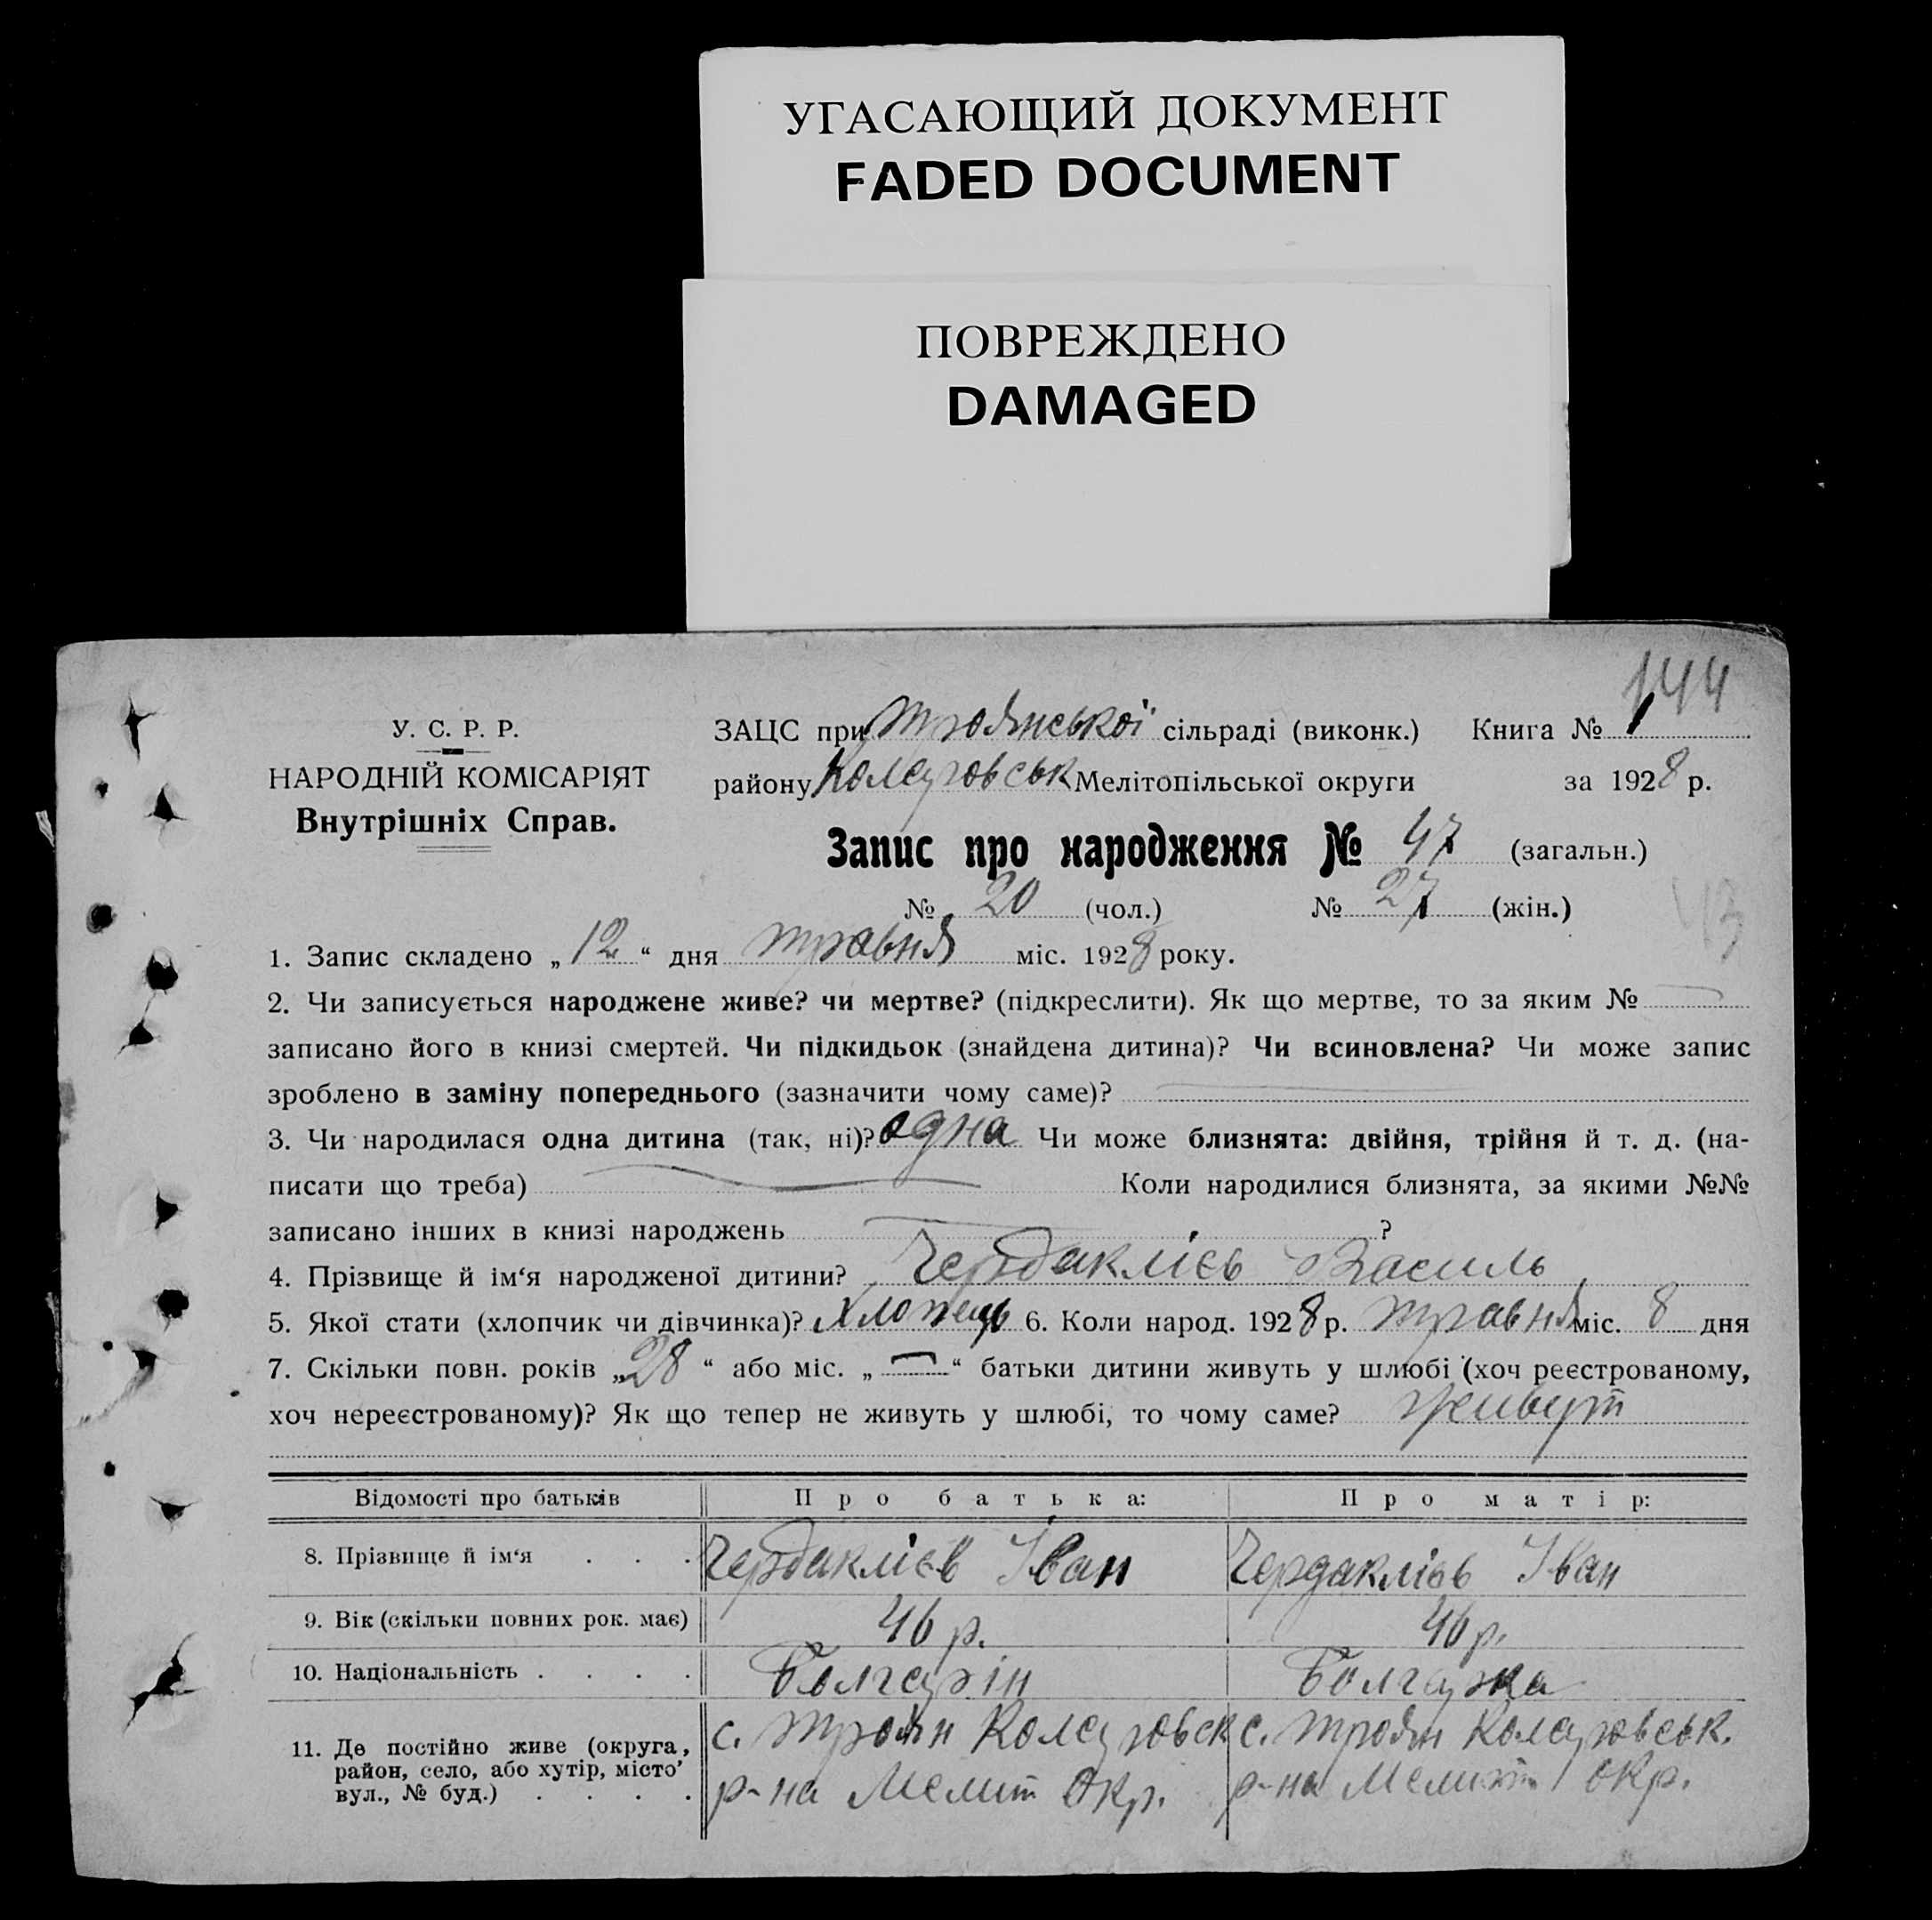 УГАСАЮЩИЙ ДОКУМЕНТ
FADED DOCUMENT
ПОВРЕЖДЕНО
DAMAGED
144
У. С. Р. Р.
НАРОДНІЙ КОМІСАРІЯТ
Внутрішніх Справ.
ЗАЦС при Троянської сільраді (виконк.) Книга № 1
району Коларовськ Мелітопільської округи за 1928 р.
Запис про народження № 47 (загальн.)
№ 20 (чол.) № 27 (жін.)
43
1. Запис складено „12“ дня травня міс. 1928 року.
2. Чи записується народжене живе? чи мертве? (підкреслити). Як що мертве, то за яким №
записано його в книзі смертей. Чи підкидьок (знайдена дитина)? Чи всиновлена? Чи може запис
зроблено в заміну попереднього (зазначити чому саме)?
3. Чи народилася одна дитина (так, ні)? одна Чи може близнята: двійня, трійня й т. д. (на-
писати що треба) Коли народилися близнята, за якими №№
записано інших в книзі народжень ?
4. Прізвище й ім‘я народженої дитини? Чердаклієв Василь
5. Якої стати (хлопчик чи дівчинка)? Хлопець 6. Коли народ. 1928 р. травня міс. 8 дня
7. Скільки повн. років „28“ або міс. „—“ батьки дитини живуть у шлюбі (хоч реєстрованому,
хоч нереєстрованому)? Як що тепер не живуть у шлюбі, то чому саме? живут
Відомості про батьків Про батька: Про матір:
8. Прізвище й ім‘я . . . Чердаклієв Іван Чердаклієв Іван
9. Вік (скільки повних рок. має) 46 р. 46 р.
10. Національність . . . . Болгарін Болгарка
11. Де постійно живе (округа, с. Троян Коларовск с. Троян Коларовськ.
район, село, або хутір, місто’
вул., № буд.) . . . . р-на Мелит Окр. р-на Мелит Окр.